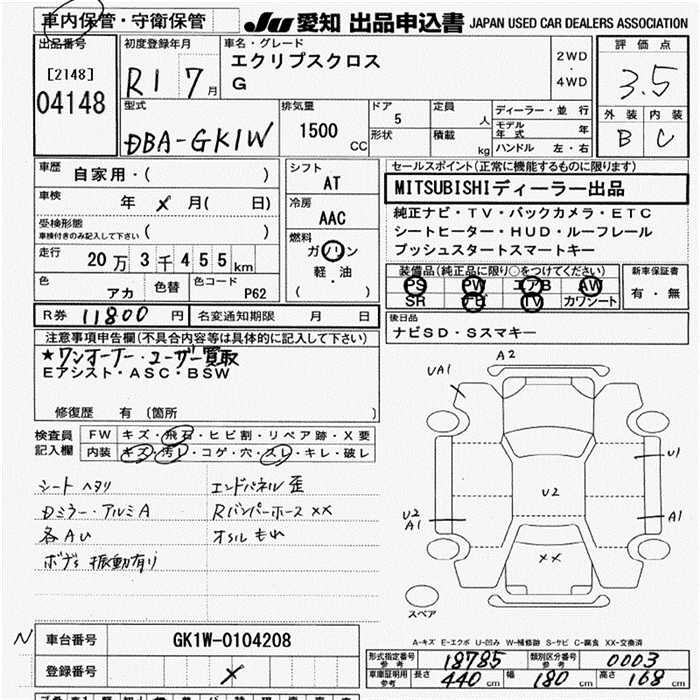 車内保管・守衛保管 JU 愛知 出品申込書 JAPAN USED CAR DEALERS ASSOCIATION
出品番号
[2148]
04148
初度登録年月
R1 7月
車名・グレード
エクリプスクロス
G
2WD
・
4WD
評価点
3.5
外装 内装
B C
型式
DBA-GK1W
排気量
1500
CC
ドア
5
形状
定員
人
積載
kg
ディーラー・並行
モデル年式 年
ハンドル 左・右
車歴
自家用・( )
車検
年 メ 月( 日)
受検形態
車検付きのみ記入して下さい ( )
走行
20万3千455km
色
アカ
色替
色コード
P62
シフト
AT
冷房
AAC
燃料
ガソリン
軽・油
( )
セールスポイント(正常に機能するものに限ります)
MITSUBISHIディーラー出品
純正ナビ・TV・バックカメラ・ETC
シートヒーター・HUD・ルーフレール
プッシュスタートスマートキー
装備品(純正品に限り○をつけてください)
PS PW エアB AW
SR ナビ TV カワシート
新車保証書
有・無
R券 11800 円
名変通知期限 月 日
後日品
ナビSD・Sスマキー
注意事項申告欄(不具合内容等は具体的に記入して下さい)
★ワンオーナー・ユーザー買取
Eアシスト・ASC・BSW
修復歴 有 (箇所 )
検査員
記入欄
FW キズ・飛石・ヒビ割・リペア跡・X要
内装 キズ・汚レ・コゲ・穴・スレ・キレ・破レ
シート ヘタリ
Dミラー・アルミA
各AU
ボデー 振動有り
エンドパネル 歪
Rバンパーホース ××
オイル もれ
A2
UA1
U1
U2
U2
A1
A1
××
スペア
A-キズ E-エクボ U-凹み W-補修跡 S-サビ C-腐食 XX-交換済
N
車台番号 GK1W-0104208
登録番号 メ
形式指定番号
参考
18785
類別区分番号
参考
0003
車庫証明用
参考
長さ 440 cm 幅 180 cm 高さ 168 cm